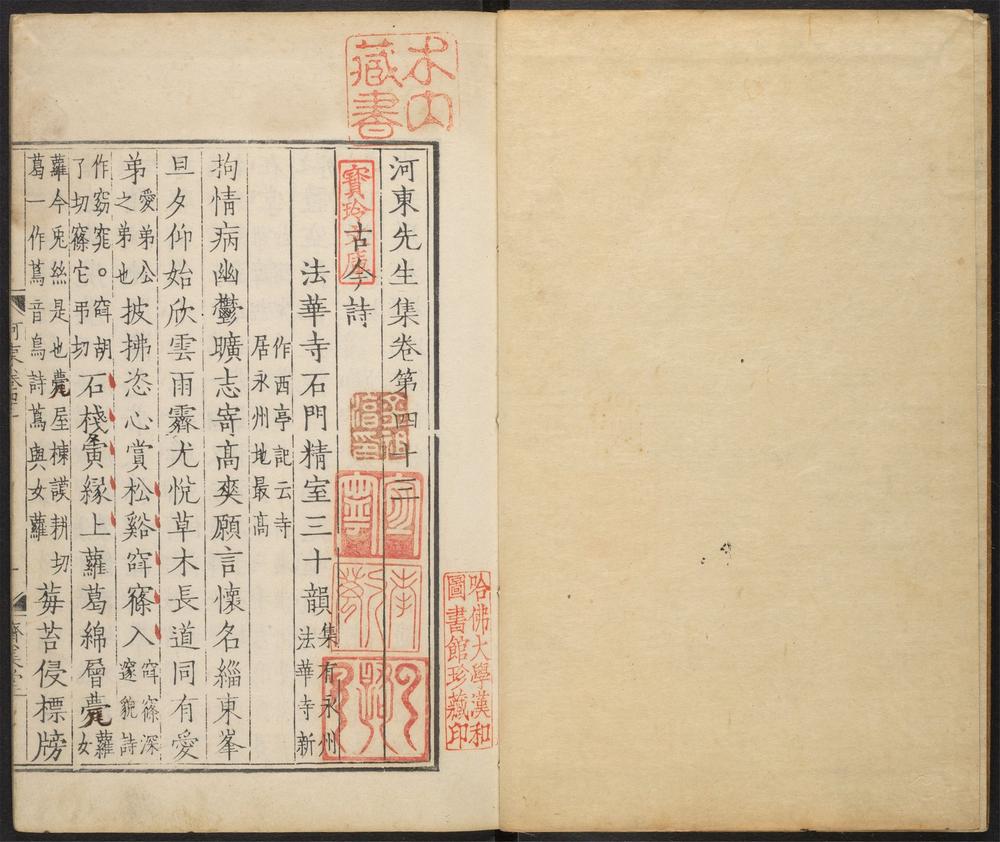 河東先生集卷第四十三
古今詩
法華寺石門精室三十韻集有永州法華寺新
作西亭記云寺居永州地最高
拘情病幽鬱曠志寄高爽願言懷名緇東峯
旦夕仰始欣雲雨霽尤悅草木長道同有愛
弟愛弟公之弟也披拂恣心賞松谿窅窱入窅窱深邃貌詩
作窈窕。窅胡了切窱它弔切石棧寅緣上蘿葛綿層甍蘿女
蘿今兎絲是也甍屋棟謨耕切葛一作蔦音鳥詩蔦與女蘿莓苔侵標牓
木内藏書
寶玲文庫
哈佛大學漢和圖書館珍藏印